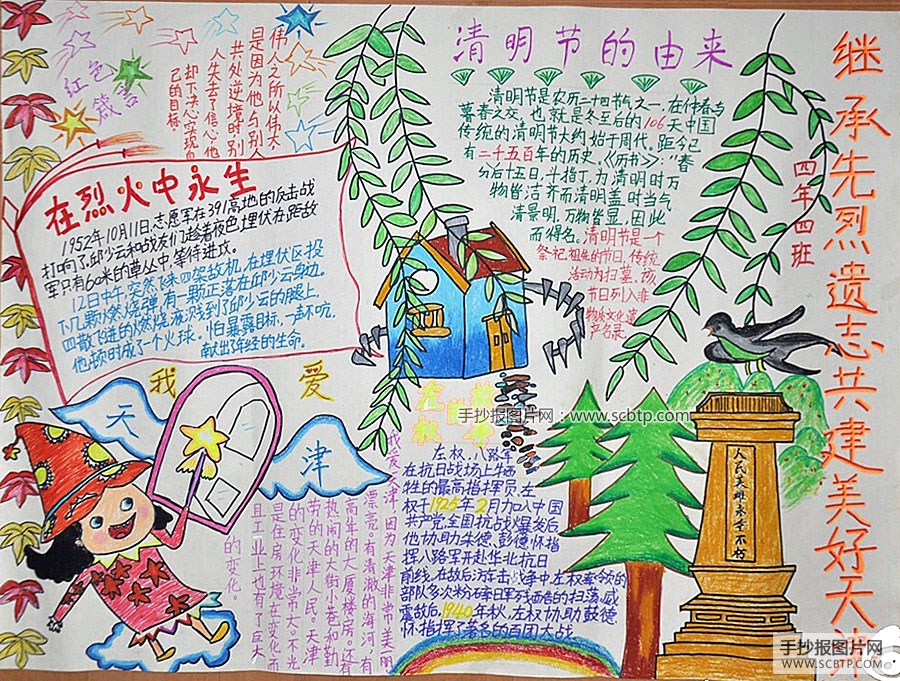 继承先烈遗志共建美好天津
四年四班
清明节的由来
清明节是农历二十四节气之一,在仲春与
暮春之交,也就是冬至后的106天中国
传统的清明节大约始于周代,距今已
有二千五百年的历史。《历书》:“春
分后十五日,斗指丁,为清明时万
物皆洁齐而清明盖时当气
清景明,万物皆显,因此
而得名。清明节是一个
祭祀祖先的节日,传统
活动为扫墓。该
节日列入非
物质文化遗
产名录。
红色
箴言
伟人之所以伟大,
是因为他与别人
共处逆境时,别
人失去了信心,他
却下决心实现自
己的目标。
在烈火中永生
1952年10月11日,志愿军在391高地的反击战
打响了,邱少云和战友们趁着夜色埋伏在距敌
军只有60米的草丛中,等待进攻。
12日中午,突然飞来四架敌机,在埋伏区投
下几颗燃烧弹,有一颗正落在邱少云身边,
四散飞进的燃烧液溅到了邱少云的腿上,
他顿时成了一个火球,怕暴露目标,一声不吭,
献出了年轻的生命。
我爱
天津
我爱天津,因为天津非常美丽
漂亮。有清澈的海河,有
高耸的大厦楼房。还有
热闹的大街小巷和勤
劳的天津人民。天津
的变化非常大。不光
是住房环境在变化而
且工业上也有了巨大
的变化。
左权
左权,八路军
在抗日战场上牺
牲的最高指挥员。左
权于1925年2月加入中国
共产党,全国抗战爆发后
他协助朱德、彭德怀指
挥八路军开赴华北抗日
前线,在敌后游击战争中,左权率领的
部队多次粉碎日军残酷的扫荡,威
震敌后,1940年秋,左权协助彭德
怀指挥了著名的百团大战
人民英雄永垂不朽
手抄报图片网:www.scbtp.com
手抄报图片网
WWW.SCBTP.COM